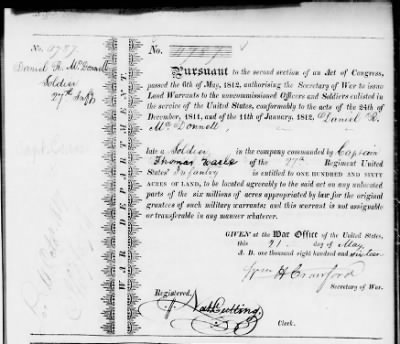 No. 1787.
Daniel R. McDonnell
Soldier
27th Inf.
WAR DEPARTMENT.
No. 1787.
Pursuant to the second section of an Act of Congress,
passed the 6th of May, 1812, authorising the Secretary of War to issue
Land Warrants to the uncommissioned Officers and Soldiers enlisted in
the service of the United States, conformably to the acts of the 24th of
December, 1811, and of the 11th of January, 1812. Daniel R.
McDonnell
late a Soldier in the company commanded by Captain
Thomas of the 27th Regiment United
States' Infantry is entitled to ONE HUNDRED AND SIXTY
ACRES OF LAND, to be located agreeably to the said act on any unlocated
parts of the six millions of acres appropriated by law for the original
grantees of such military warrants; and this warrant is not assignable
or transferable in any manner whatever.
GIVEN at the War Office of the United States,
this 21 day of May,
A. D. one thousand eight hundred and sixteen
Wm H Crawford
Secretary of War.
Registered.
Nat Cutting.
Clerk.